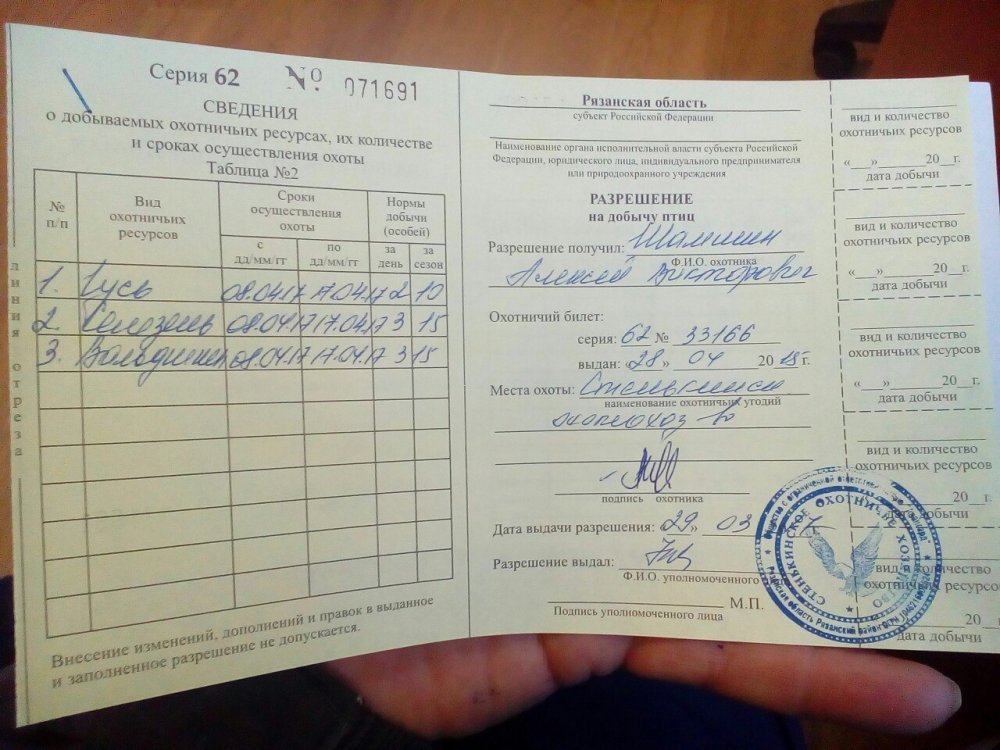 Серия 62 № 071691
СВЕДЕНИЯ
о добываемых охотничьих ресурсах, их количестве
и сроках осуществления охоты
Таблица №2
№ п/п
Вид охотничьих ресурсов
Сроки осуществления охоты
Нормы добычи (особей)
с дд/мм/гг
по дд/мм/гг
за день
за сезон
1. Гусь 08.04.17 17.04.17 2 10
2. Селезень 08.04.17 17.04.17 3 15
3. Вальдшнеп 08.04.17 17.04.17 3 15
Внесение изменений, дополнений и правок в выданное
и заполненное разрешение не допускается.
линия отреза
Рязанская область
субъект Российской Федерации
Наименование органа исполнительной власти субъекта Российской
Федерации, юридического лица, индивидуального предпринимателя
или природоохранного учреждения
РАЗРЕШЕНИЕ
на добычу птиц
Разрешение получил:
Ф.И.О. охотника
Алексей Викторович
Охотничий билет:
серия: 62 № 33166
выдан: «28» 04 20 15 г.
Места охоты: Стенькинск
наименование охотничьих угодий
охотхоз во
подпись охотника
Дата выдачи разрешения: «29» 03 17
Разрешение выдал:
Ф.И.О. уполномоченного
М.П.
Подпись уполномоченного лица
СТЕНЬКИНСКОЕ ОХОТНИЧЬЕ ХОЗЯЙСТВО
Общество с ограниченной ответственностью
Рязанская область Рязанский район
вид и количество
охотничьих ресурсов
«___»______20__г.
дата добычи
вид и количество
охотничьих ресурсов
«___»______20__г.
дата добычи
вид и количество
охотничьих ресурсов
«___»______20__г.
дата добычи
вид и количество
охотничьих ресурсов
20__г.
дата добычи
вид и количество
охотничьих ресурсов
20__г.
дата добычи